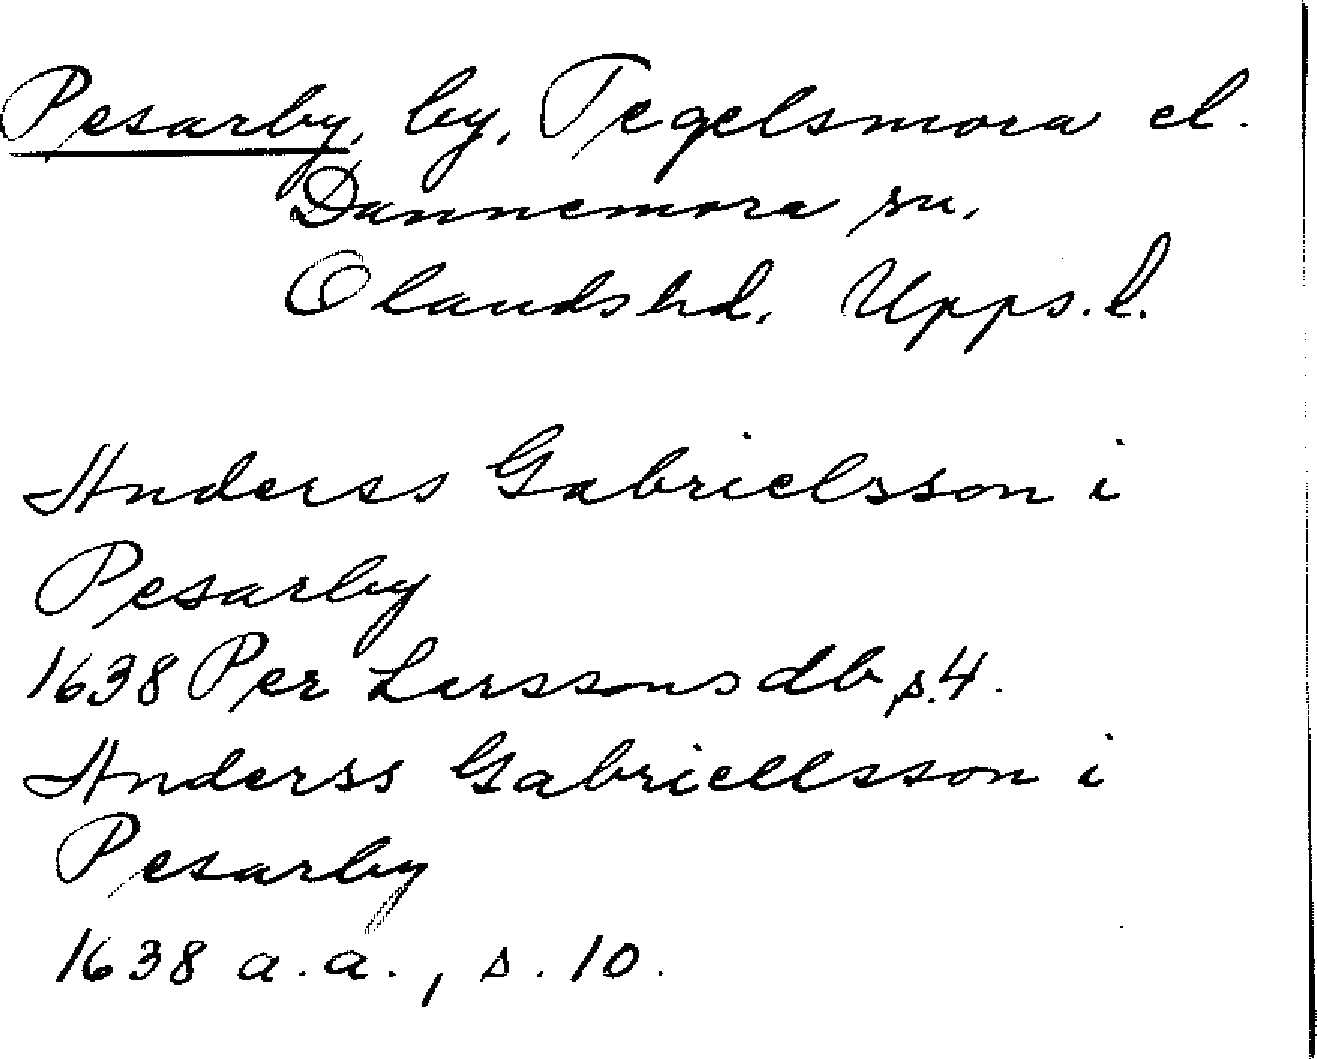 Pesarby, by, Tegelsmora el.
Dannemora sn,
Olands hd, Upps. l.
Anderss Gabrielsson i
Pesarby
1638 Per Larssons db s. 4.
Anderss Gabriellsson i
Pesarby
1638 a. a., s. 10.